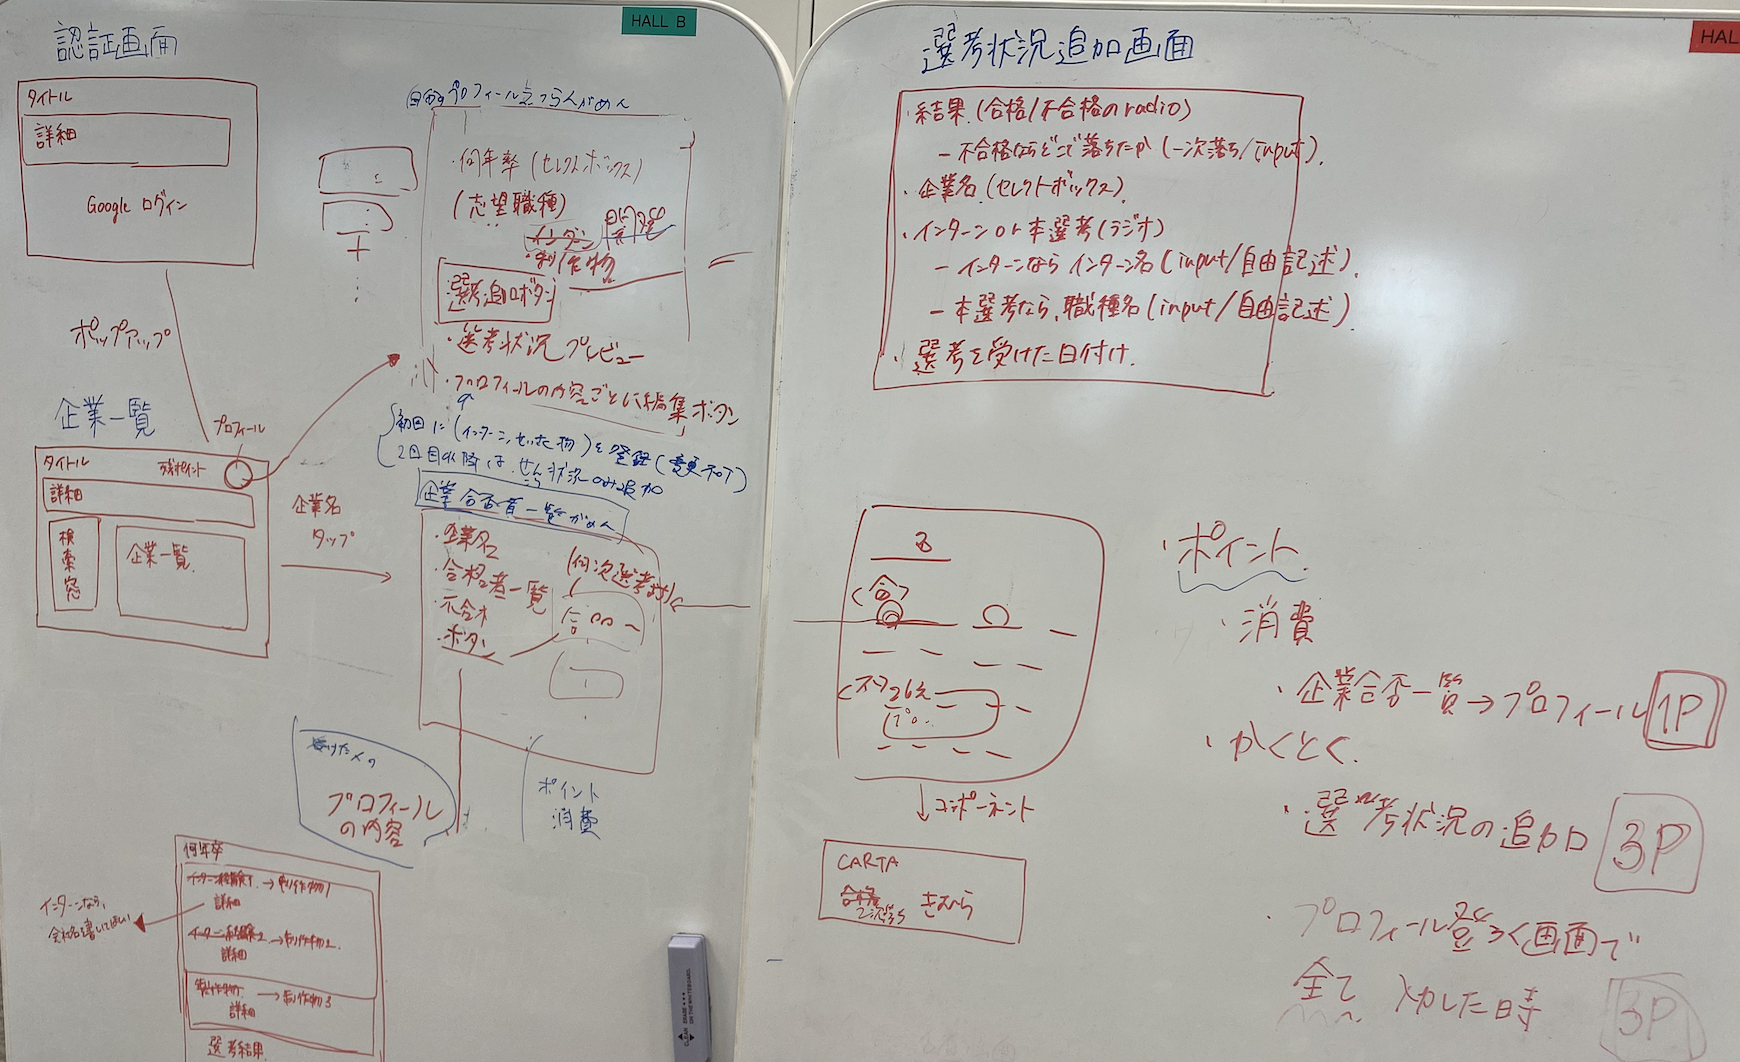 HALL B
認証画面
タイトル
詳細
Google ログイン
ポップアップ
企業一覧
プロフィール
タイトル
残ポイント
詳細
検索窓
企業一覧
企業名
タップ
自分のプロフィール
・何年卒 (セレクトボックス)
(志望職種)
インターン 開発
・制作物
選考追加ボタン
・選考状況 プレビュー
・プロフィールの内容ごとに編集ボタン
初回に (インターン, せいさく物) を登録 (変更不可)
2回目以降は、せんこう状況のみ追加
企業合否者一覧がめん
・企業名
・合格者一覧
(何次選考まで)
・不合格
・ボタン
合
受けた人の
プロフィール
の内容
ポイント
消費
何年卒
インターン経験1 → 制作物1
詳細
インターン経験2 → 制作物2
詳細
制作物 → 制作物3
詳細
選考結果
インターンなら、
会社名を書いてほしい
HAL
選考状況追加画面
・結果 (合格/不合格のradio)
- 不合格ならどこで落ちたか (一次落ち/input)
・企業名 (セレクトボックス)
・インターン or 本選考 (ラジオ)
- インターンなら インターン名 (input/自由記述)
- 本選考なら、職種名 (input/自由記述)
・選考を受けた日付け
合
↓コンポーネント
CARTA
合格
2次落ち きむら
・ポイント
・消費
・企業合否一覧→プロフィール 1P
・かくとく
・選考状況の追加 3P
・プロフィール登ろく画面で
全て 入力した時 3P
CLEAN ERASE
ON THE WHITEBOARD